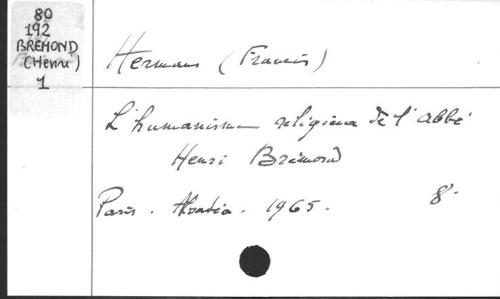 80
192
BREMOND
(Henri)
1
Hermans (Francis)
L'humanisme religieux de l'abbé
Henri Brémond
Paris. Alsatia. 1965. 8°.